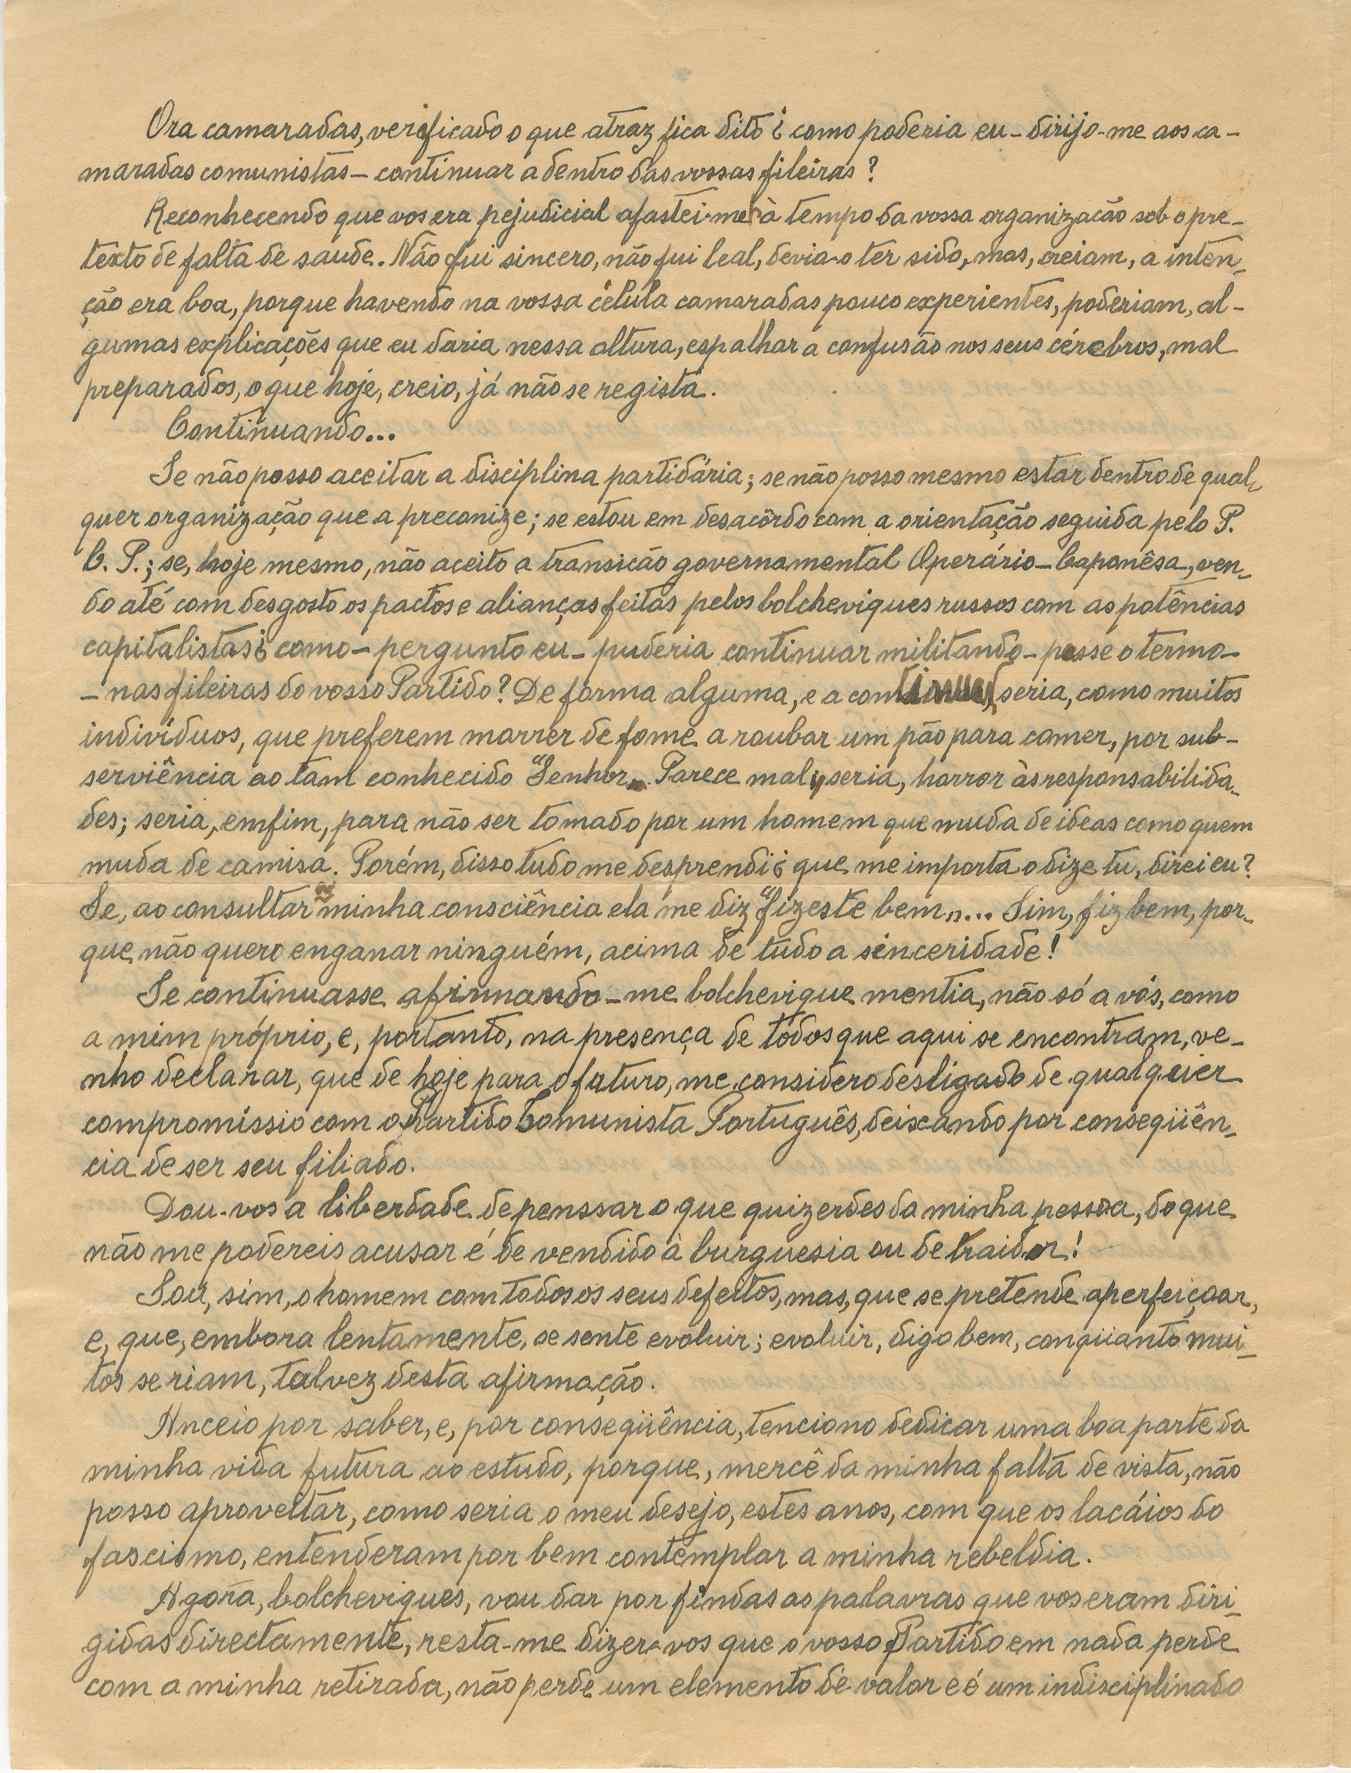 Ora camaradas, verificado o que atraz fica dito ¿ como poderia eu - dirijo-me aos ca-
maradas comunistas - continuar a dentro das vossas fileiras?
Reconhecendo que vos era pejudicial afastei-me à tempo da vossa organização sob o pre-
texto de falta de saude. Não fui sincero, não fui leal, devia-o ter sido, mas, creiam, a inten-
ção era boa, porque havendo na vossa célula camaradas pouco experientes, poderiam, al-
gumas explicações que eu daria nessa altura, espalhar a confusão nos seus cérebros, mal
preparados, o que hoje, creio, já não se regista.
Continuando...
Se não posso aceitar a disciplina partidária; se não posso mesmo estar dentro de qual-
quer organização que a preconize; se estou em desacôrdo com a orientação seguida pelo P.
C. P.; se, hoje mesmo, não aceito a transição governamental Operário-Caponêsa, ven-
do até com desgosto os pactos e alianças feitas pelos bolcheviques russos com as potências
capitalistas ¿ como - pergunto eu - puderia continuar militando - passe o termo -
- nas fileiras do vosso Partido? De forma alguma, e a continuar, seria, como muitos
indivíduos, que preferem morrer de fome a roubar um pão para comer, por sub-
serviência ao tam conhecido "Senhor„ Parece mal; seria, horror às responsabilida-
des; seria, emfim, para não ser tomado por um homem que muda de ideas como quem
muda de camisa. Porém, disso tudo me desprendi ¿ que me importa o dize tu, direi eu?
Se, ao consultar a minha consciência ela me diz "fizeste bem„... Sim, fiz bem, por-
que não quero enganar ninguém, acima de tudo a sinceridade!
Se continuasse afirmando-me bolchevique mentia, não só a vós, como
a mim próprio, e, portanto, na presença de todos que aqui se encontram, ve-
nho declarar, que de hoje para o futuro, me considero desligado de qualquer
compromíssio com o Partido Comunista Português, deixando por conseqüên-
cia de ser seu filiado.
Dou-vos a liberdade de penssar o que quizerdes da minha pessoa, do que
não me podereis acusar é de vendido à burguesia ou de traidor!
Sou, sim, o homem com todos os seus defeitos, mas, que se pretende aperfeiçoar,
e, que, embora lentamente, se sente evoluir; evoluir, digo bem, conqüanto mui-
tos se riam, talvez desta afirmação.
Anceio por saber, e, por conseqüência, tenciono dedicar uma boa parte da
minha vida futura ao estudo, porque, mercê da minha falta de vista, não
posso aproveitar, como seria o meu desejo, estes anos, com que os lacáios do
fascismo, entenderam por bem contemplar a minha rebeldia.
Agora, bolcheviques, vou dar por findas as palavras que vos eram diri-
gidas directamente, resta-me dizer-vos que o vosso Partido em nada perde
com a minha retirada, não perde um elemento de valor e é um indisciplinado